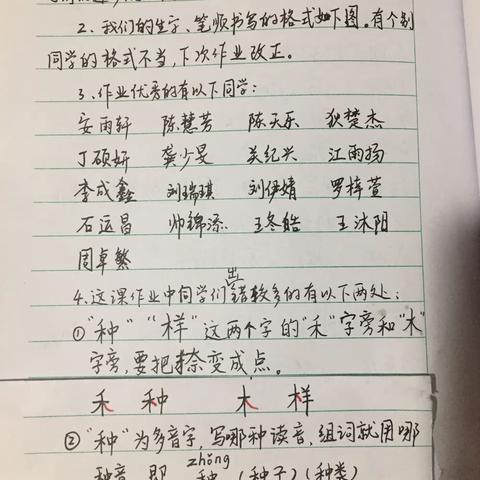 2、我们的生字、笔顺书写的格式如下图。有个别
同学的格式不当，下次作业改正。
3、作业优秀的有以下同学：
安雨轩 陈慧芳 陈天乐 狄楚杰
丁硕妍 龚少旻 关纪兴 江雨扬
李成鑫 刘瑞琪 刘伊婧 罗梓萱
石运昌 帅锦添 王冬皓 王沐阳
周卓繁
4、这课作业中同学们出错较多的有以下两处：
①“种”“样”这两个字的“禾”字旁和“木”
字旁，要把捺变成点。
禾 种 木 样
②“种”为多音字，写哪种读音，组词就用哪
zhǒng
种音，即 种（种子）（种类）